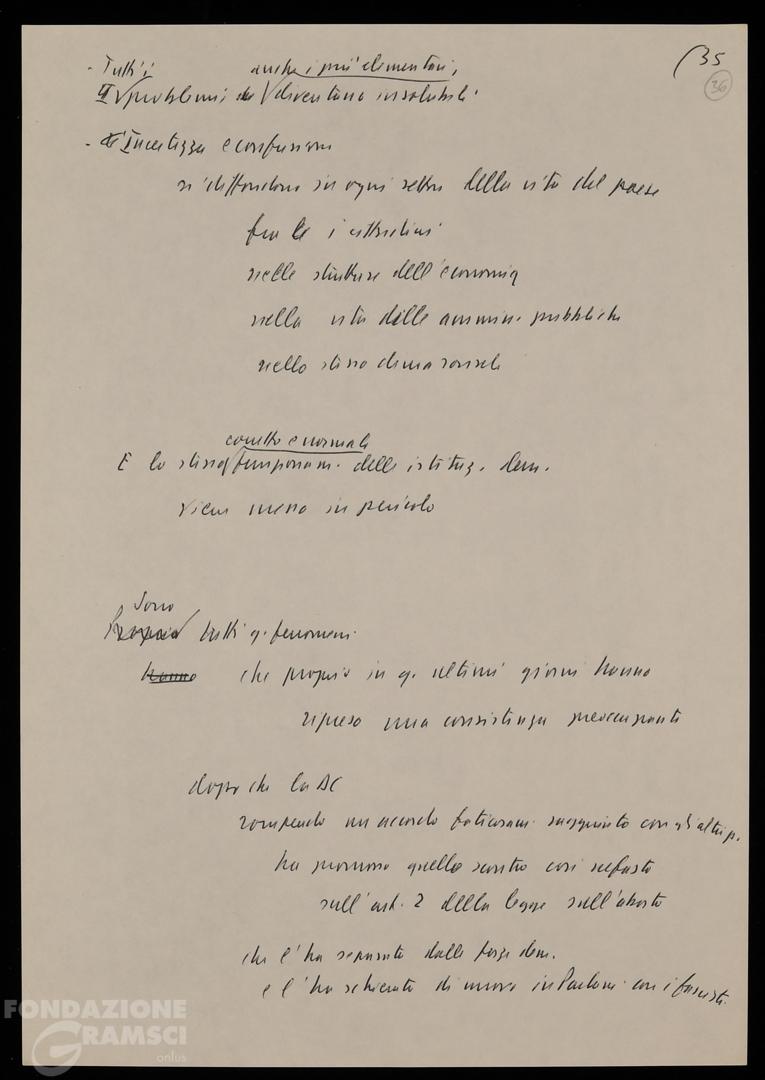 35
36
- Tutti i anche i più elementari,
I problemi diventano insolubili
- Incertezza e confusione
si diffondono in ogni settore della vita del paese
fra i cittadini
nelle strutture dell'economia
nella vita delle ammin. pubbliche
nello stesso clima sociale
corretto e normale
E lo stesso funzionam. delle istituz. dem.
viene messo in pericolo
Sono
tutti q. fenomeni
hanno che proprio in q. ultimi giorni hanno
ripreso una consistenza preoccupante
dopo che la DC
rompendo un accordo faticosam. raggiunto con gli altri p.
ha promosso quello scontro così nefasto
sull'art. 2 della legge sull'aborto
che l'ha separata dalle forze dem.
e l'ha schierata di nuovo in Parlam. con i fascisti.
FONDAZIONE
GRAMSCI
onlus